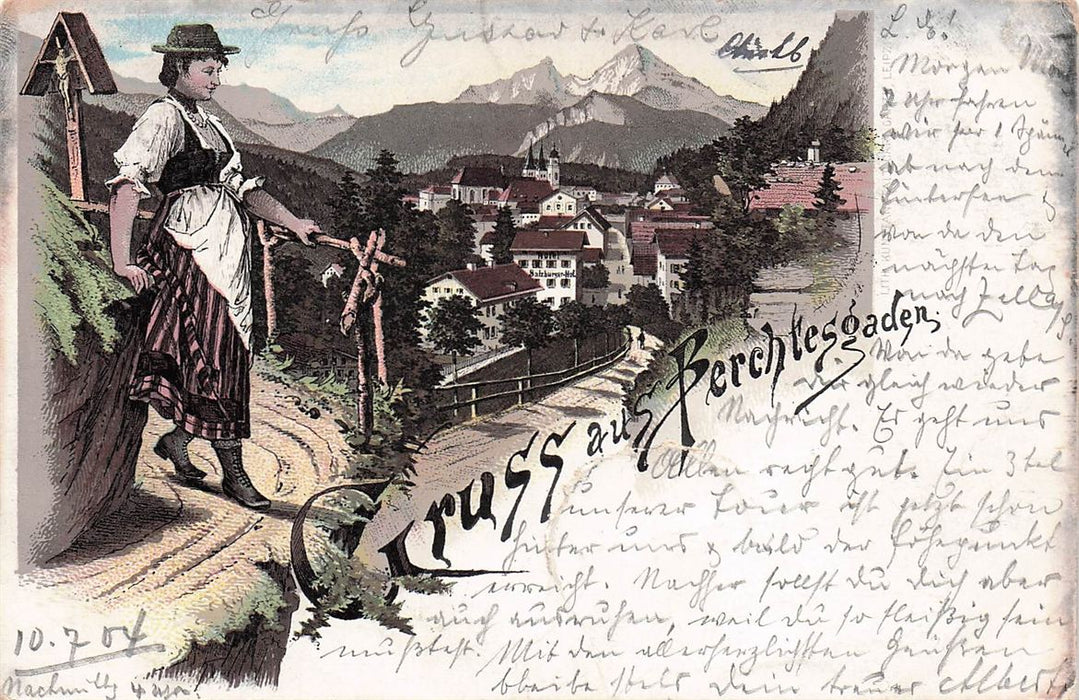 Gruss Gustav & Karl
L. E.!
Morgen
2 Uhr fahren
wir per 1 Spänn
ab nach dem
Hintersee &
von da den
nächsten Tag
nach Zell a/S.
Von da gebe
Dir gleich wieder
Nachricht. Es geht uns
Allen recht gut. Ein 3tel
unserer Tour ist jetzt schon
hinter uns & bald der Höhepunkt
erreicht. Nachher sollst Du Dich aber
auch ausruhen, weil Du so fleißig sein
mußtest. Mit den allerherzlichsten Grüßen
bleibe stets Dein treuer Albert
Salzburger-Hof
Gruss aus Berchtesgaden.
10.7 04
Nachmittg 4 Uhr.